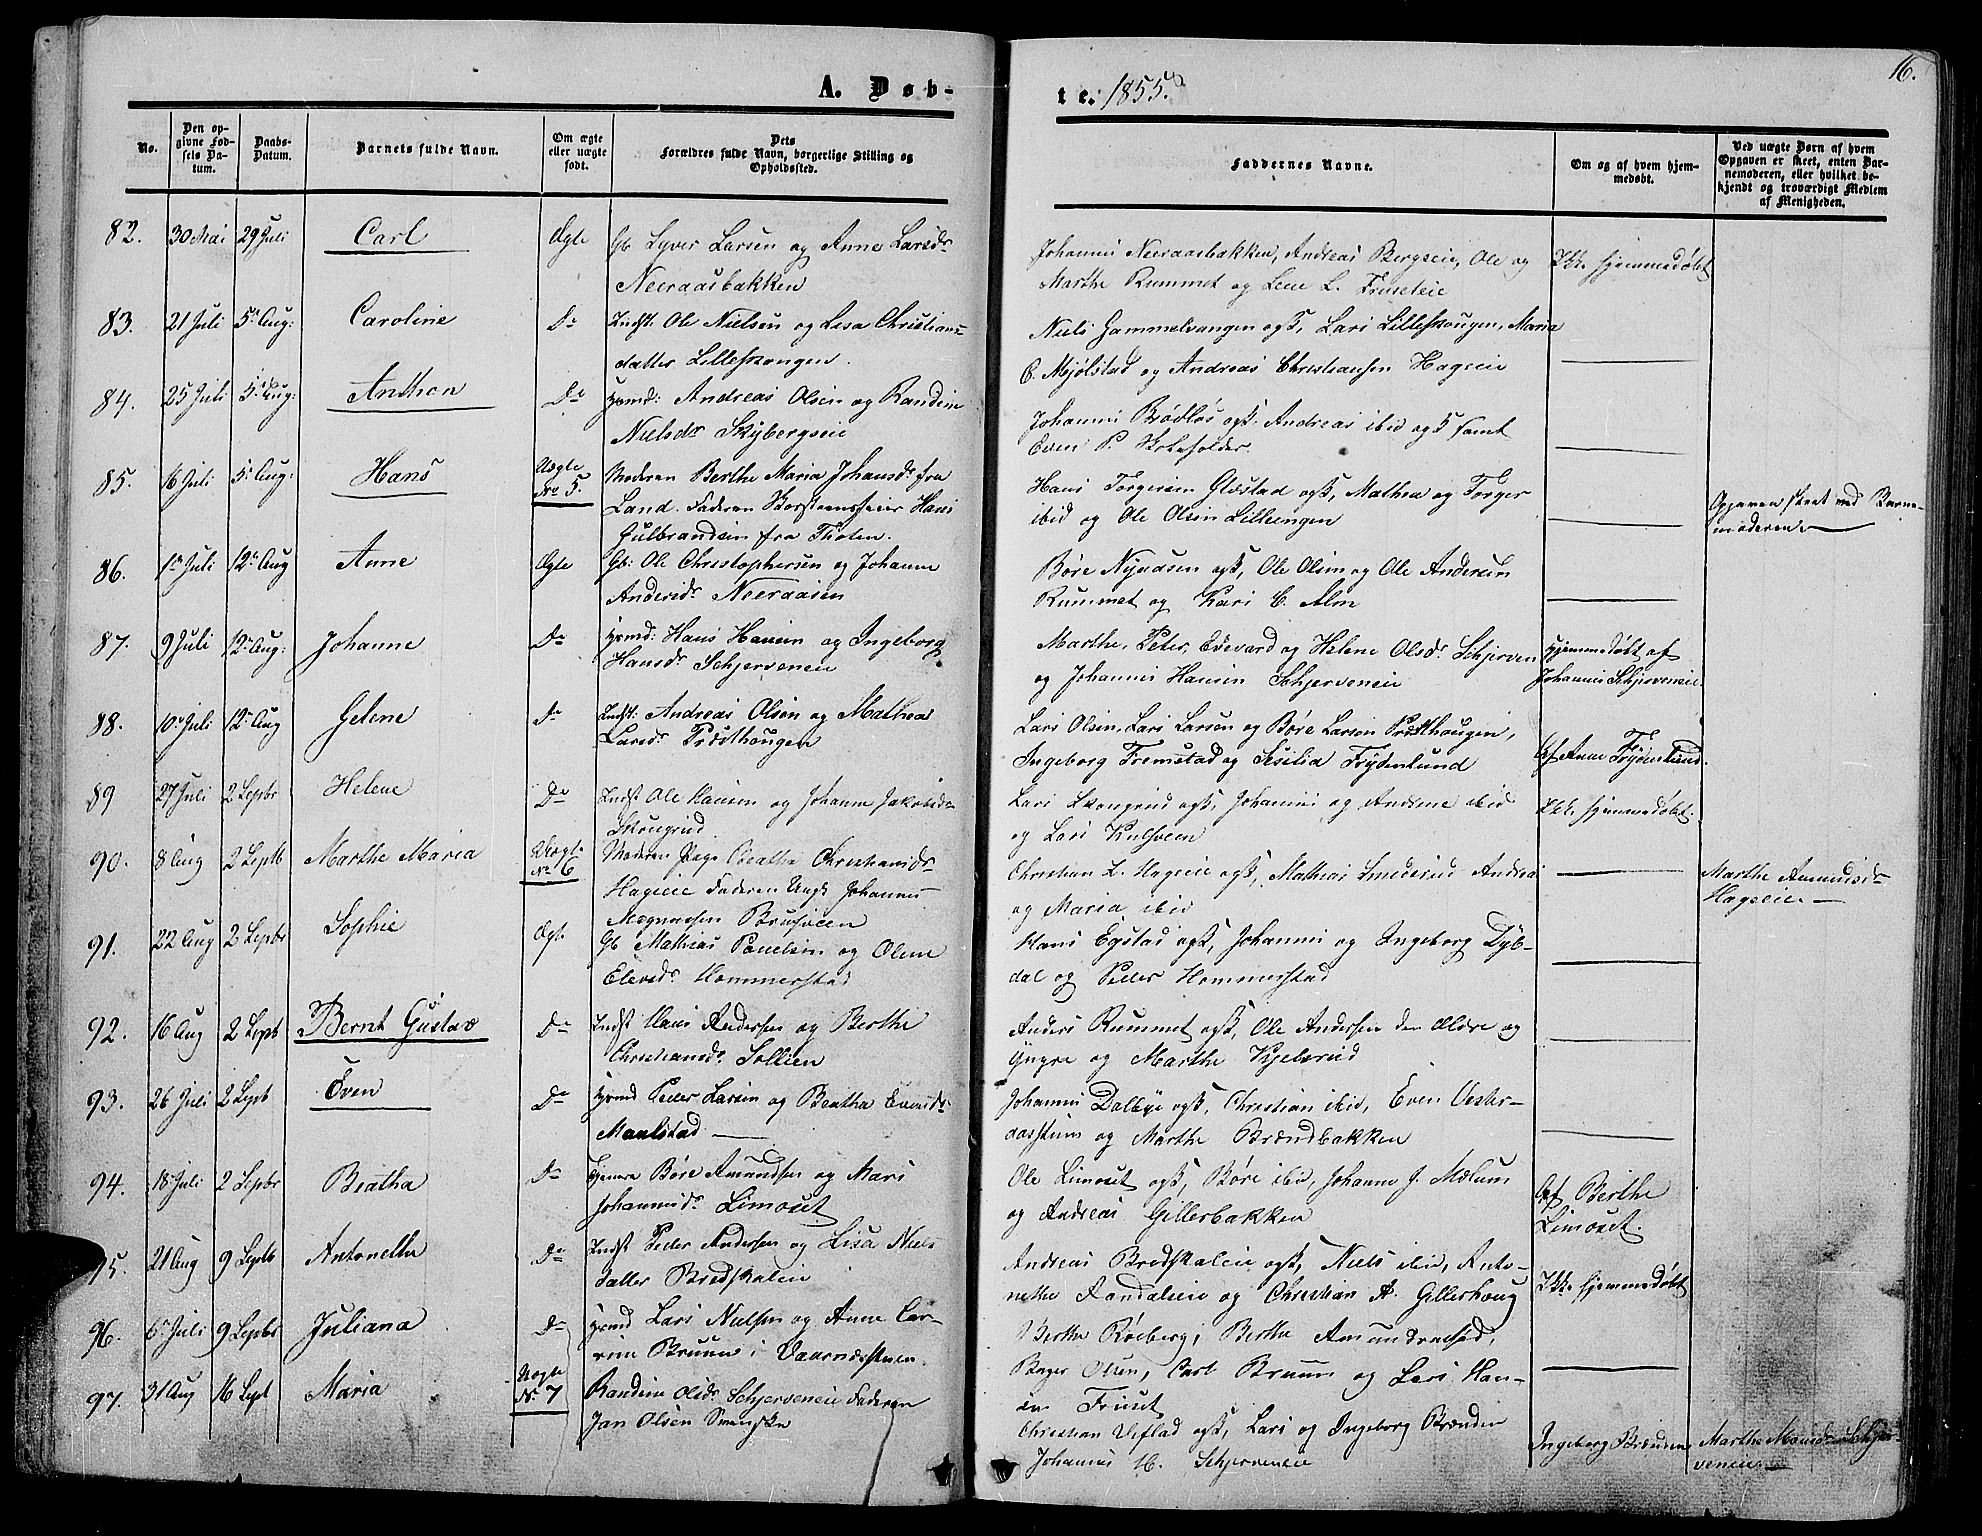 16.
A. Døb-
te. 1855.
No.
Den op-
givne Fød-
sels Da-
tum.
Daabs-
Datum.
Barnets fulde Navn.
Om ægte
eller uægte
født.
Dets
Forældres fulde Navn, borgerlige Stilling og
Opholdssted.
Faddernes Navne.
Om og af hvem hjem-
medøbt.
Ved uægte Børn af hvem
Opgaven er skeet, enten Bar-
nemoderen, eller hvilket be-
kjendt og troværdigt Medlem
af Menigheden.
82. 30 Mai 29 Juli Carl Ægte Gb Syver Larsen og Anne Larsdr
Neeraasbakken
Johannes Neeraasbakken, Andreas Bergseie, Ole og
Marthe Rummet og Lene L. Fruseteie
Ikke hjemmedøbt
83. 21 Juli 5te Aug: Caroline Do Indst: Ole Nielsen og Lisa Christians-
datter Lilleskougen.
Niels Gammelvangen ogk, Lars Lilleskougen, Maria
C. Mjølstad og Andreas Christiansen Hageeie
84. 25 Juli 5te Aug: Anthon Do Hsmd: Andreas Olsen og Randine
Nielsdr Skybergseie
Johannes Brødløs ogk. Andreas ibid ogk samt
Even P.
85. 16 Juli 5te Aug: Hans Uægte
No 5.
Moderen Berthe Maria Johansdr fra
Land. Faderen Skorsteensfeier Hans
Gulbrandsen fra Thoten.
Hans Torgersen Glæstad ogk, Mathea og Torger
ibid og Ole Olsen Lilleengen
Opgaven skeet ved Barne-
moderen.
86. 1te Juli 12te Aug Anne Ægte Gb: Ole Christophersen og Johanne
Andersdr Neeraasen
Børe Nyaasen ogk, Ole Olsen og Ole Andersen
Rummet og Kari C. Alm
87. 9 Juli 12te Aug: Johanne Do Hsmd: Hans Hansen og Ingeborg
Hansdr Schjerveneie
Marthe, Peter, Edevard og Helene Olsdr Schjerven
og Johannes Hansen Schjerveneie
Hjemmedøbt af
Johannes Schjerveneie.
88. 10de Juli 12te Aug Gelene Do Indst: Andreas Olsen og Mathea
Larsdr Præsthougen
Lars Olsen, Lars Larsen og Børe Larsen Præsthougen,
Ingeborg Fremstad og Sesilia Frydenlund
af Anne Frydenlund.
89 27 Juli 2 Septbr Helene Do Indst Ole Hansen og Johanne Jakobsdr
Skougrud
Lars Skougrud ogk, Johannes og Andrine ibid
og Lars Kulsveen
Ikke hjemmedøbt.
90. 8 Aug 2 Septb Marthe Maria Uægte
No 6
Moderen Pige Beatha Christiansdr
Hageeie Faderen Ungk Johannes
Magnussen Brusveen
Christian L. Hageeie ogk, Mathias Smederud Andrea
og Maria ibid
Marthe Amundsdr
Hageeie.
91. 22 Aug 2 Septbr Sophie Ægte Gb Mathias Poulsen og Oline
Eliasdr Hommerstad
Hans Egstad ogk, Johannes og Ingeborg Dyb-
dal og Peder Hommerstad
92. 16 Aug 2 Septb Bernt Gustav Do Indst Hans Andersen og Berthe
Christiansdr Sollien
Anders Rummet ogk, Ole Andersen den Ældre og
Yngre og Marthe Kjelsrud
93. 26 Juli 2 Septb Even Do Hsmd Peder Larsen og Beatha Evensdr
Maalstad
Johannes Dalbye ogk, Christian ibid, Even Vester-
aasstuen og Marthe Brændbakken
94. 18 Juli 2 Septbr Beatha Do Børe Amundsen og Mari
Johannesdr Limoset
Ole Limoset ogk, Børe ibid, Johanne J. Mælum
og Andreas Gillerbakken
Af Berthe
Limoset.
95. 21 Aug 9 Septb Antonette Do Indst Peder Andersen og Lisa Niels-
datter Bredskaleie
Andreas Bredskaleie ogk, Niels ibid, Anto-
nette Aandalseie og Christian A. Gillerhoug
Ikke hjemmedøbt
96. 6te Juli 9 Septbr Juliana Do Hsmd Lars Nielsen og Anne Ca-
rine Bruun i Vaarnæsstuen.
Berthe Røeberg, Berthe
Børger Olsen, Carl Bruun og Lars Han-
sen Fruset
97. 31 Aug 16 Sept Maria Uægte
No 7
Randine Olsdr Schjerveneie Faderen
Jan Olsen Svenske
Christian Veflad ogk, Lars og Ingeborg Brænden
Johannes H. Schjerveneie
Ingeborg Brænden
Marthe Monsdr Schjer-
veneie